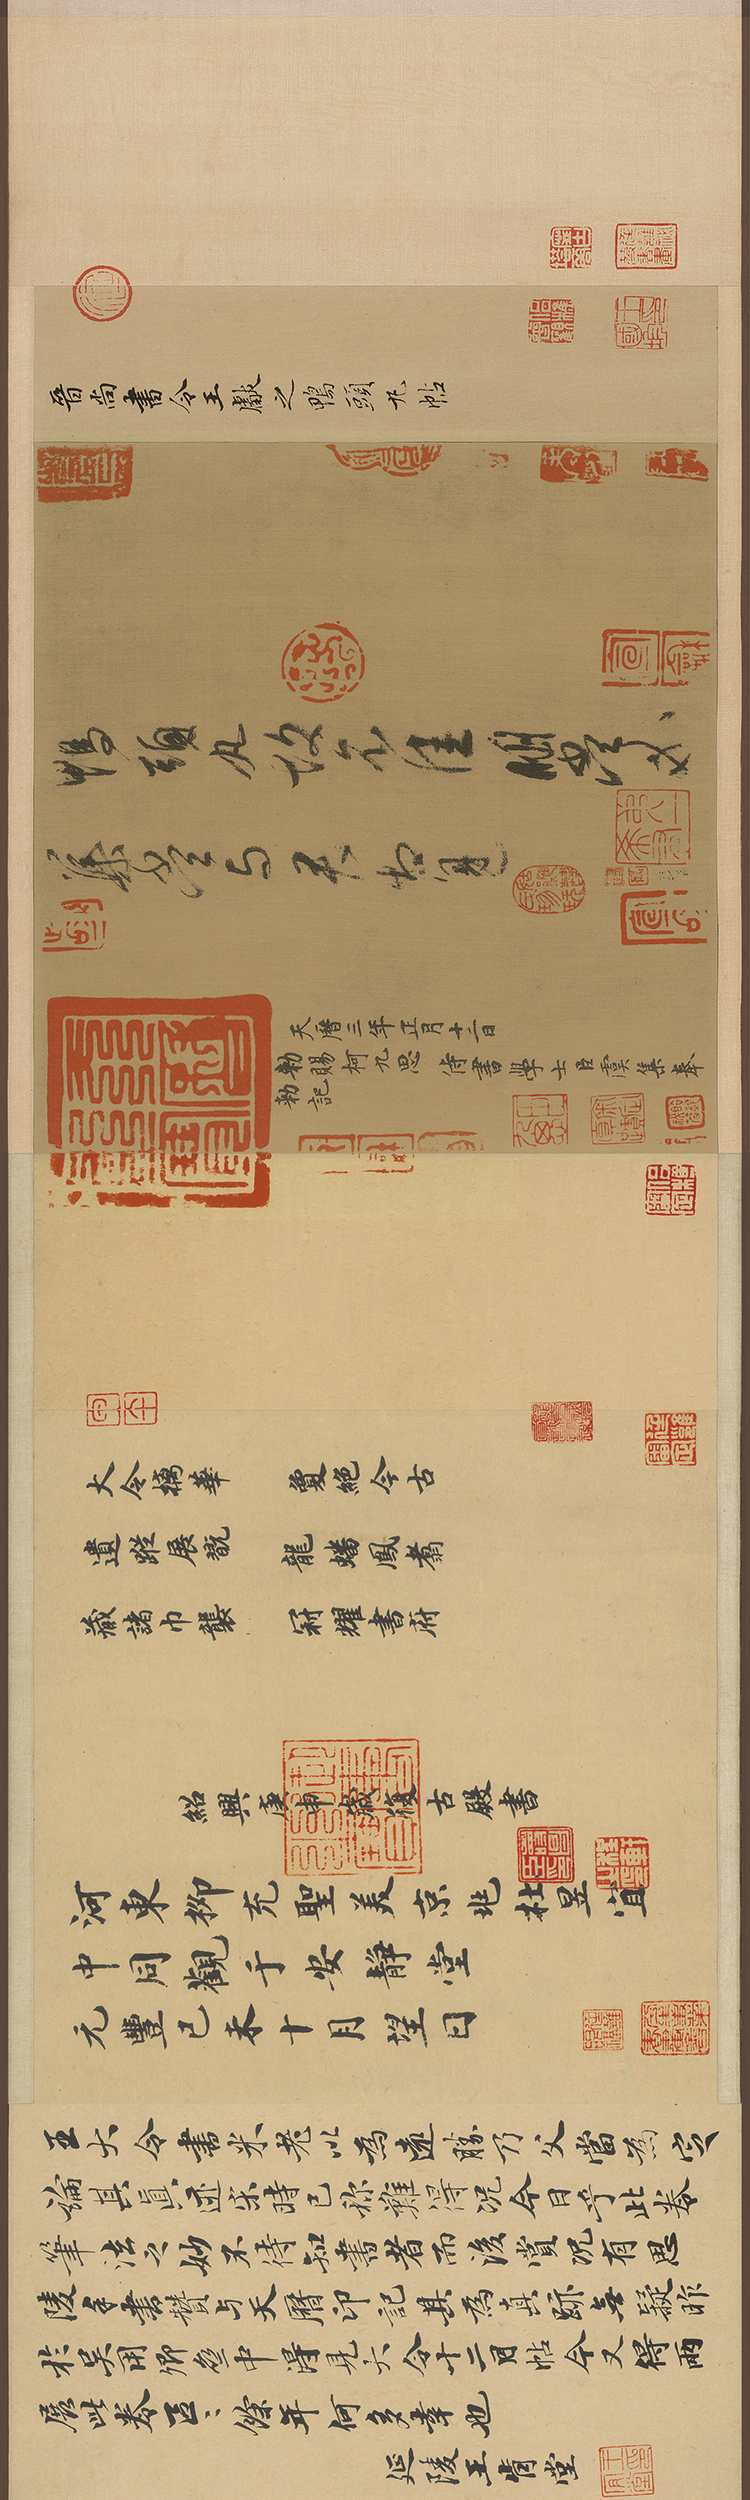 晉尚書令王獻之鴨頭丸帖
鴨頭丸故不佳明當必
集當與君相見
天曆三年正月十二日
勅賜柯九思侍書學士臣虞集奉
勅記
大令摛華　夐絕今古
遺蹤展翫　龍蟠鳳翥
藏諸巾襲　冠耀書府
紹興庚申歲復古殿書
河東柳充聖美京兆杜昱宜
中同觀于安靜堂
元豐己未十月望日
王大令書米老以為遠勝乃父當為定
論其真迹宋時已称難得況今日乎此卷
筆法之妙不待知書者而後賞況有思
陵手書贊与天曆印記其為真跡無疑昨
於吳用卿中得見大令十二月帖今又得兩
展此卷區〻餘年何多幸也
延陵王肯堂